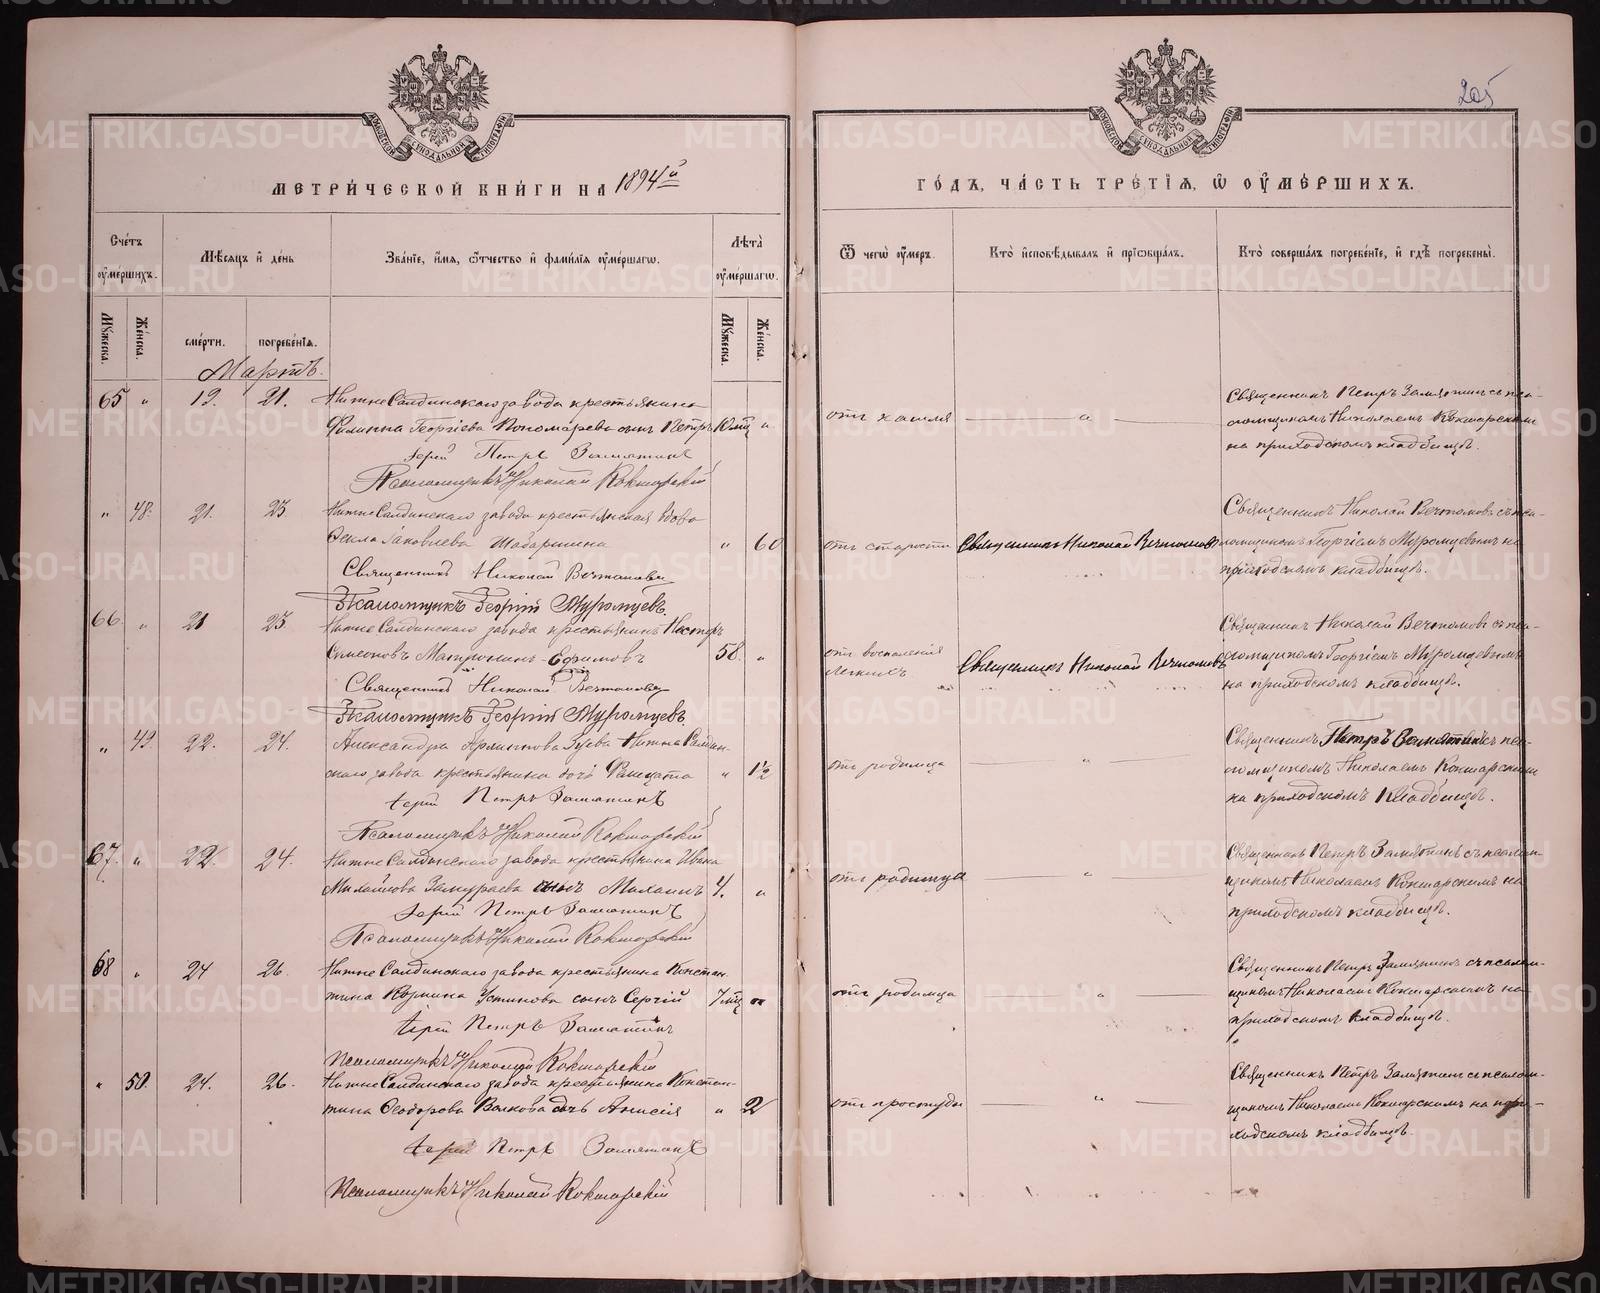 205
МОСКОВСКОЙ СѴНОДАЛЬНОЙ ТИПОГРАФІИ
МОСКОВСКОЙ СѴНОДАЛЬНОЙ ТИПОГРАФІИ
МЕТРИЧЕСКОЙ КНИГИ НА 1894й
ГОДЪ, ЧАСТЬ ТРЕТІЯ, Ѿ ОУМЕРШИХЪ.
Счетъ оумершихъ.
Мѣсяцъ и день
Званіе, имя, отчество и фамилія оумершагѡ.
Лѣта оумершагѡ.
Ѿ чегѡ оумеръ.
Кто исповѣдывалъ и пріѡбщалъ.
Кто совершалъ погребеніе, и гдѣ погребены.
Мужеска.
Женска.
смерти.
погребенія.
Мужеска.
Женска.
Мартъ.
65 " 19. 21. Нижне Салдинскаго завода крестьянина
Филиппа Георгіева Пономарева сынъ Петръ 10 мц "
отъ кашля — " —
Священникъ Петръ Замятинъ съ пса-
ломщикомъ Николаемъ Кокшарскимъ
на приходскомъ кладбищѣ.
Іерей Петръ Замятинъ
Псаломщикъ Николай Кокшарскій
" 48. 21. 23 Нижне Салдинскаго завода крестьянская вдова
Ѳекла Іаковлева Шабаршина " 60
отъ старости Священникъ Николай Вечтомовъ
Священникъ Николай Вечтомовъ съ пса-
ломщикомъ Георгіемъ Муромцевымъ на
приходскомъ кладбищѣ.
Священникъ Николай Вечтомовъ
Псаломщикъ Георгій Муромцевъ.
66. " 21 23 Нижне Салдинскаго завода крестьянинъ Несторъ
Симеоновъ Матронинъ-Ефимовъ 58. "
отъ воспаленія
легкихъ
Священникъ Николай Вечтомовъ
Священникъ Николай Вечтомовъ съ пса-
ломщикомъ Георгіемъ Муромцевымъ
на приходскомъ кладбищѣ.
Священникъ Николай Вечтомовъ
Псаломщикъ Георгій Муромцевъ.
" 49. 22. 24. Александра Зуева Нижне Салдин-
скаго завода крестьянина дочь " 1½
отъ родимца — " —
Священникъ Петръ Замятинъ съ пса-
ломщикомъ Николаемъ Кокшарскимъ
на приходскомъ кладбищѣ.
Іерей Петръ Замятинъ
Псаломщикъ Николай Кокшарскій
67. " 22 24. Нижне Салдинскаго завода крестьянина Ивана
Михайлова Замураева сынъ Михаилъ 4. "
отъ родимца — " —
Священникъ Петръ Замятинъ съ псалом-
щикомъ Николаемъ Кокшарскимъ на
приходскомъ кладбищѣ.
Іерей Петръ Замятинъ
Псаломщикъ Николай Кокшарскій
68 " 24 26. Нижне Салдинскаго завода крестьянина Констан
тина Устинова сынъ Сергій 7 мц "
отъ родимца — " —
Священникъ Петръ Замятинъ съ псалом-
щикомъ Николаемъ Кокшарскимъ на
приходскомъ кладбищѣ.
Іерей Петръ Замятинъ
Псаломщикъ Николай Кокшарскій
" 50. 24. 26. Нижне Салдинскаго завода крестьянина Констан-
тина Ѳеодорова Волкова дочь Анисія " 2
отъ простуды — " —
Священникъ Петръ Замятинъ съ псалом-
щикомъ Николаемъ Кокшарскимъ на при-
ходскомъ кладбищѣ.
Іерей Петръ Замятинъ
Псаломщикъ Николай Кокшарскій
METRIKI.GASO-URAL.RU